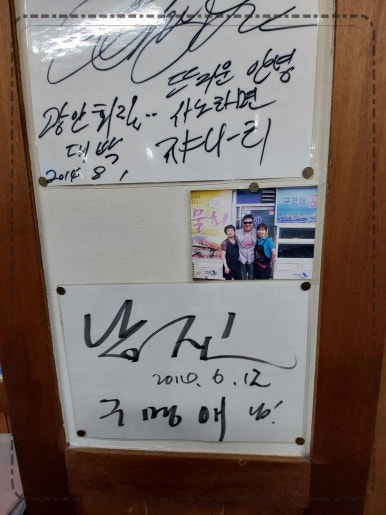 뜨거운 안녕
광안회집..
사노하면
대박
쟈니-리
2014. 8. 1
물회
구명애
남진
2010. 6. 12
구명애 님!